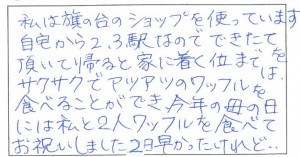 私は旗の台のショップを使っています
自宅から2,3駅なのでできたて
頂いて帰ると家に着く位までは、
サクサクでアツアツのワッフルを
食べることができ、今年の母の日
には私と2人ワッフルを食べて
お祝いしました2日早かったけれど..